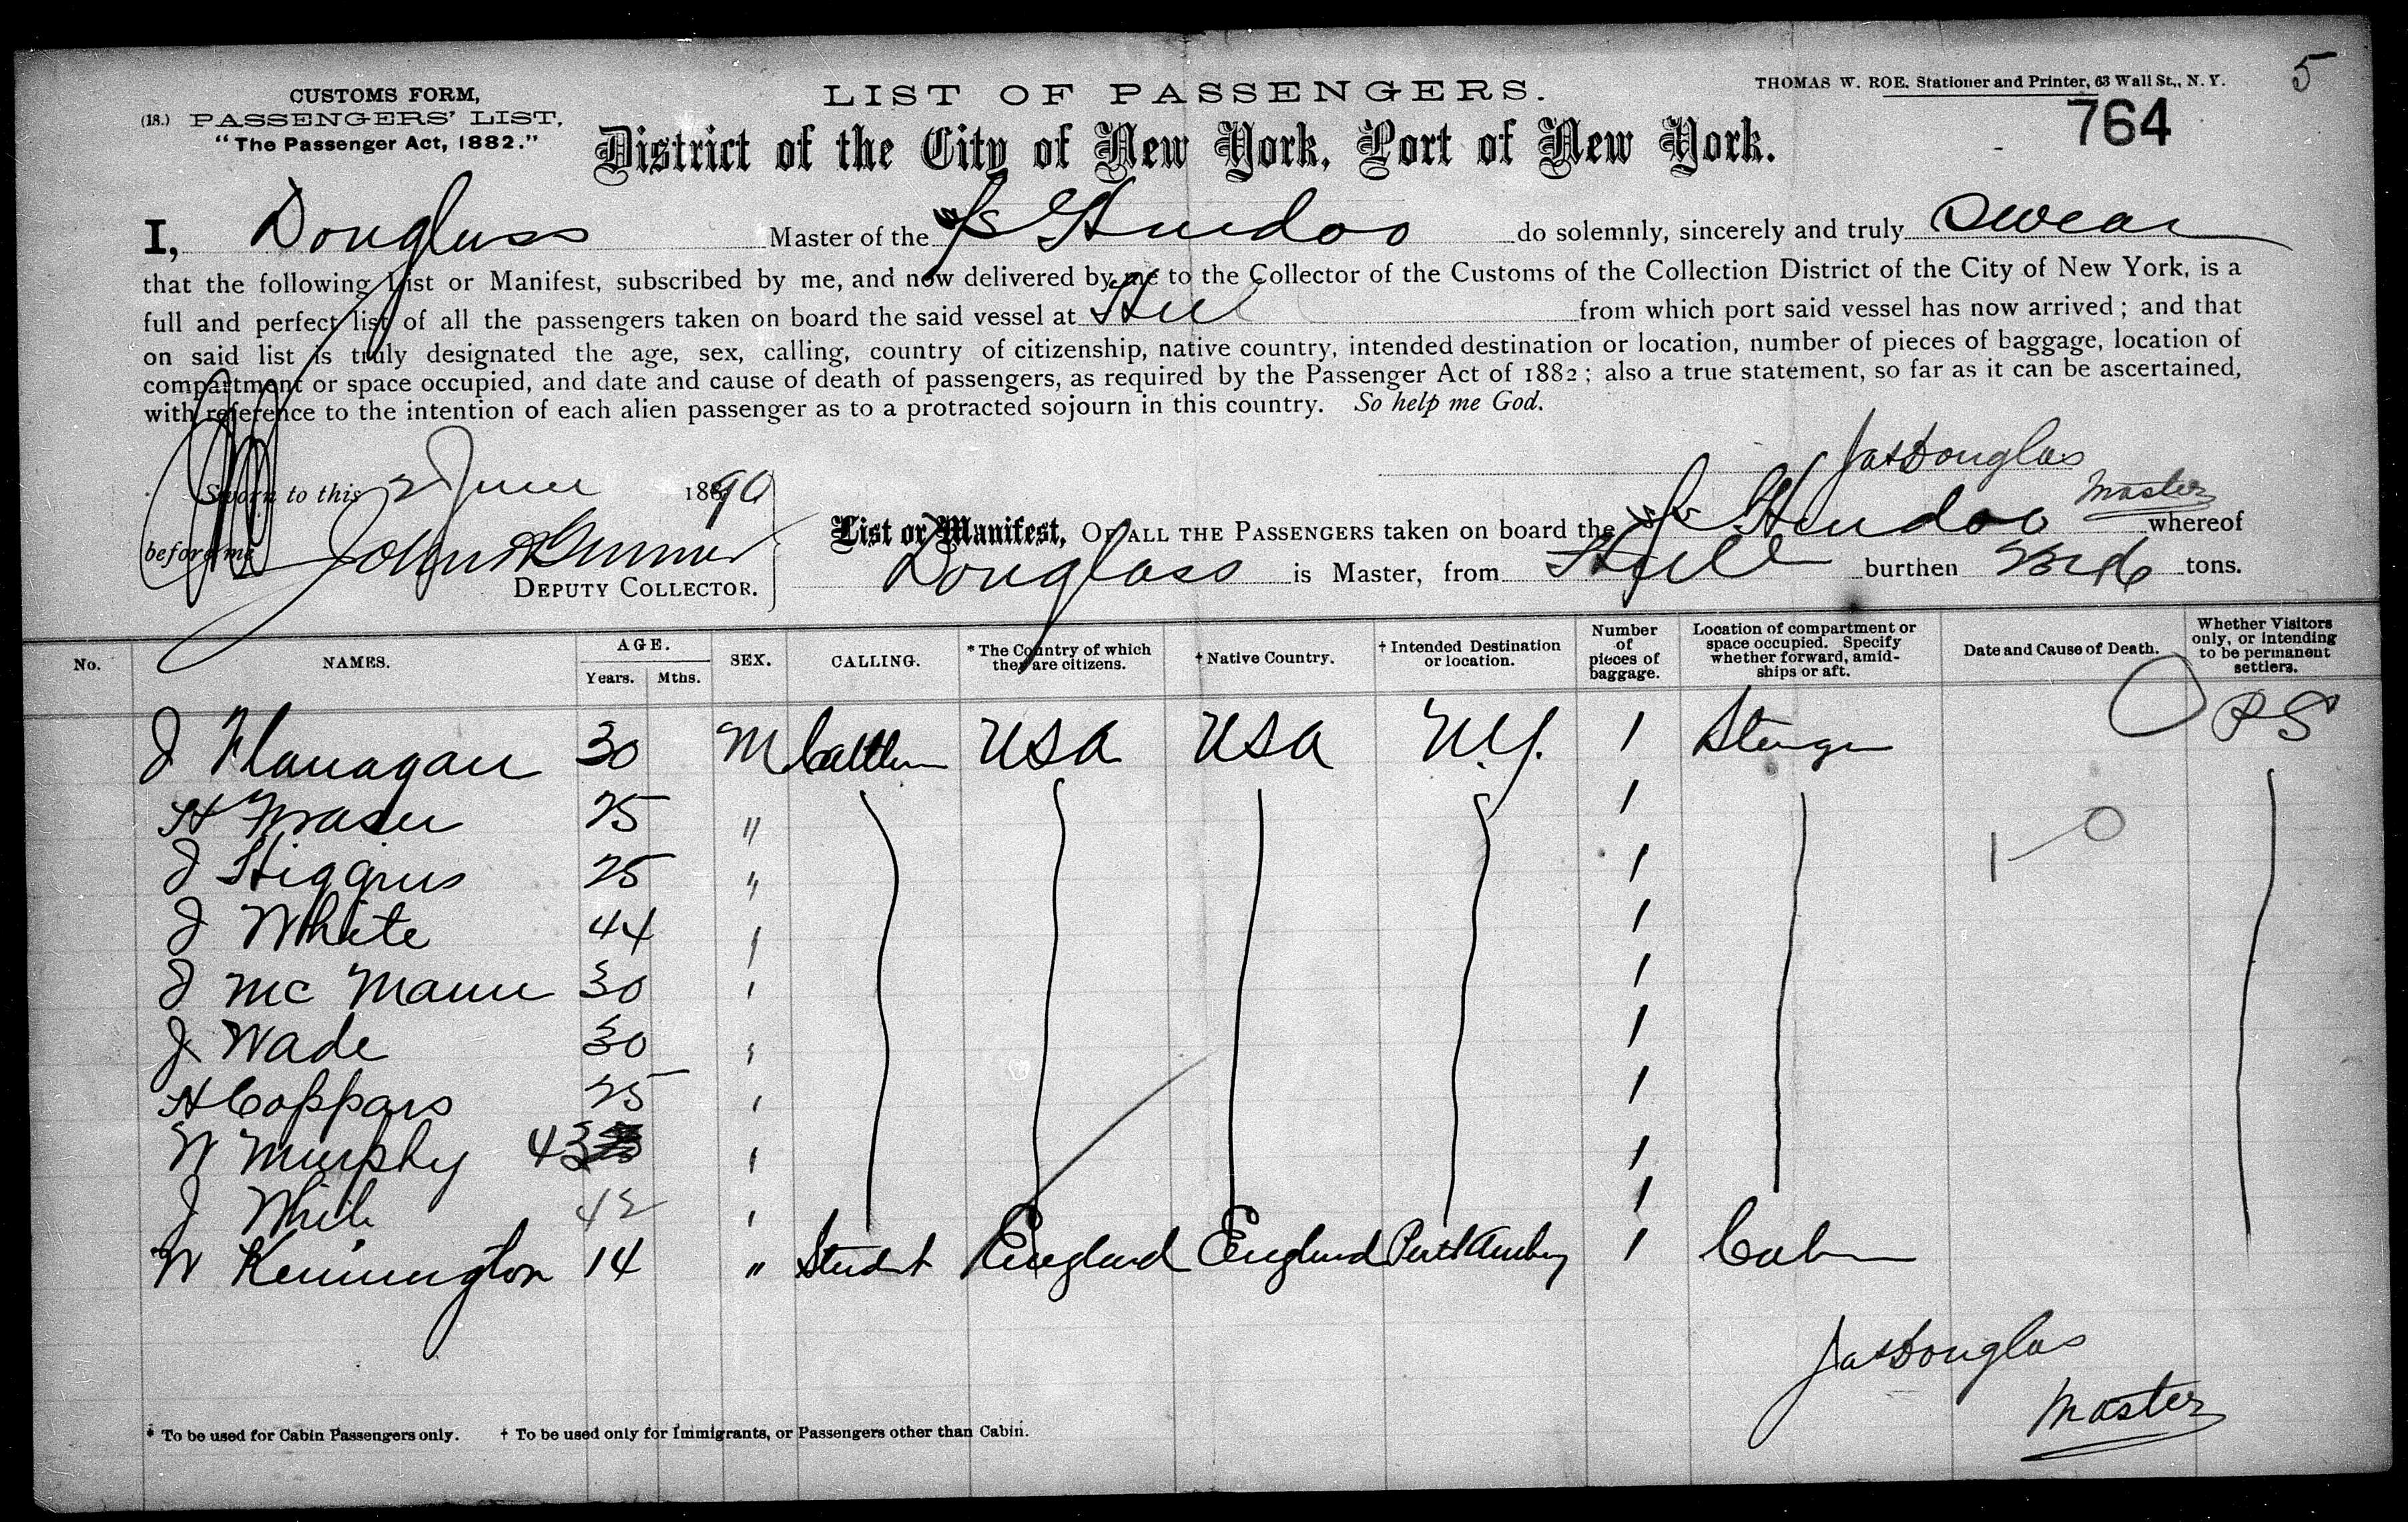 CUSTOMS FORM,
(18.) PASSENGERS' LIST,
"The Passenger Act, 1882."
LIST OF PASSENGERS.
THOMAS W. ROE. Stationer and Printer, 63 Wall St., N. Y.
5
764
District of the City of New York, Port of New York.
I, Douglass Master of the SS Hindoo do solemnly, sincerely and truly Swear
that the following List or Manifest, subscribed by me, and now delivered by me to the Collector of the Customs of the Collection District of the City of New York, is a
full and perfect list of all the passengers taken on board the said vessel at Hull from which port said vessel has now arrived; and that
on said list is truly designated the age, sex, calling, country of citizenship, native country, intended destination or location, number of pieces of baggage, location of
compartment or space occupied, and date and cause of death of passengers, as required by the Passenger Act of 1882; also a true statement, so far as it can be ascertained,
with reference to the intention of each alien passenger as to a protracted sojourn in this country. So help me God.
Jas Douglas
Master
Sworn to this 2 June 1890
before me John
DEPUTY COLLECTOR.
List or Manifest, OF ALL THE PASSENGERS taken on board the SS Hindoo whereof
Douglass is Master, from Hull burthen tons.
No. NAMES. AGE. Years. Mths. SEX. CALLING. * The Country of which they are citizens. † Native Country. † Intended Destination or location. Number of pieces of baggage. Location of compartment or space occupied. Specify whether forward, amidships or aft. Date and Cause of Death. Whether Visitors only, or intending to be permanent settlers.
J Flanagan 30 M USA USA N.Y. 1 PS
H Fraser 25 " 1
J Higgins 25 " 1
J White 44 " 1
J Mc Mann 30 " 1
J Wade 30 " 1
H Coppars 25 " 1
W Murphy 43 " 1
J White 42 " 1
W Kennington 14 " Student England England Perth Amboy 1 Cabin
Jas Douglas
Master
* To be used for Cabin Passengers only. † To be used only for Immigrants, or Passengers other than Cabin.